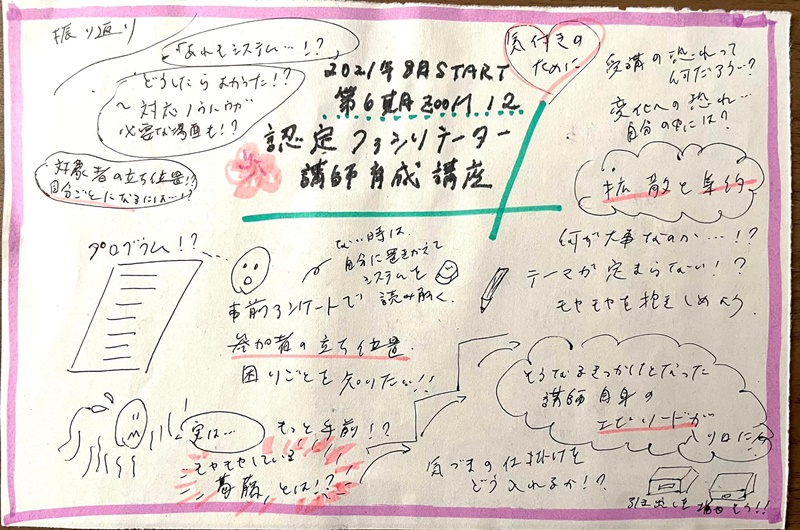 振り返り
「あれもシステム…!?
「どうしたらよかった!?
〜対応ノウハウが
必要な場面も!?
対象者の立ち位置!?
自分ごとになるには…!?
2021年8月START
第6期ZOOM12
認定ファシリテーター
講師育成講座
気付きの
ために
受講の恐れって
何だろう…?
変化への恐れ…
自分の中には?
拡散と集約
何が大事なのか…!?
テーマが定まらない!?
モヤモヤを抱きしめよう
プログラム!?
ない時は、
自分に置きかえて
システムを
読み解く
事前アンケートで
参加者の立ち位置
困りごとを知りたい!!
実は…
もっと手前!?
モヤモヤしている
葛藤とは!?
そうなるきっかけとなった
講師自身の
エピソードが
入口に
気づきの仕掛けを
どう入れるか!?
引き出しを